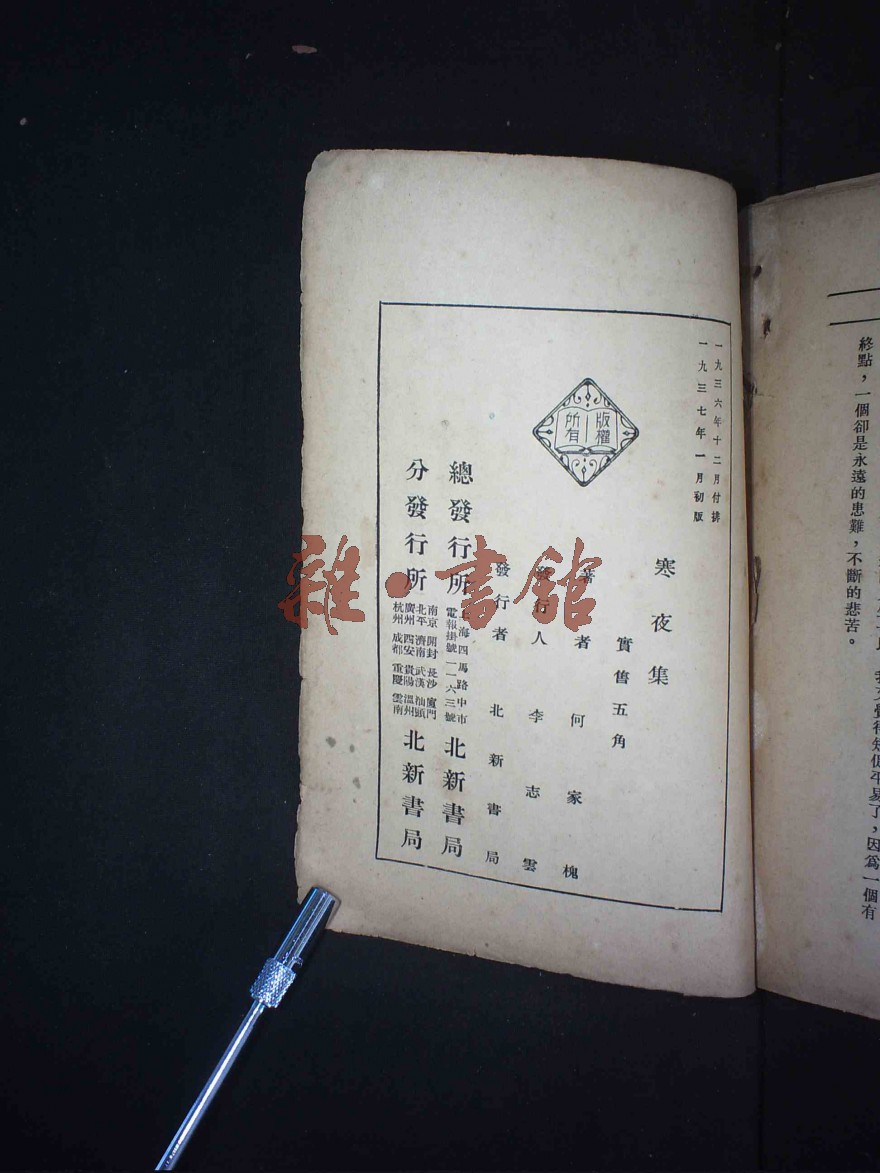 終點，一個卻是永遠的患難，不斷的悲苦。
一九三六年十二月付排
一九三七年一月初版
版權
所有
寒夜集
實售五角
著者 何家槐
發行人 李志雲
發行者 北新書局
總發行所 上海四馬路中市 電報掛號一一六三號 北新書局
分發行所
南京 開封 長沙 廈門
北平 濟南 武漢 汕頭
廣州 西安 貴陽 溫州
杭州 成都 重慶 雲南
北新書局
雜·書館